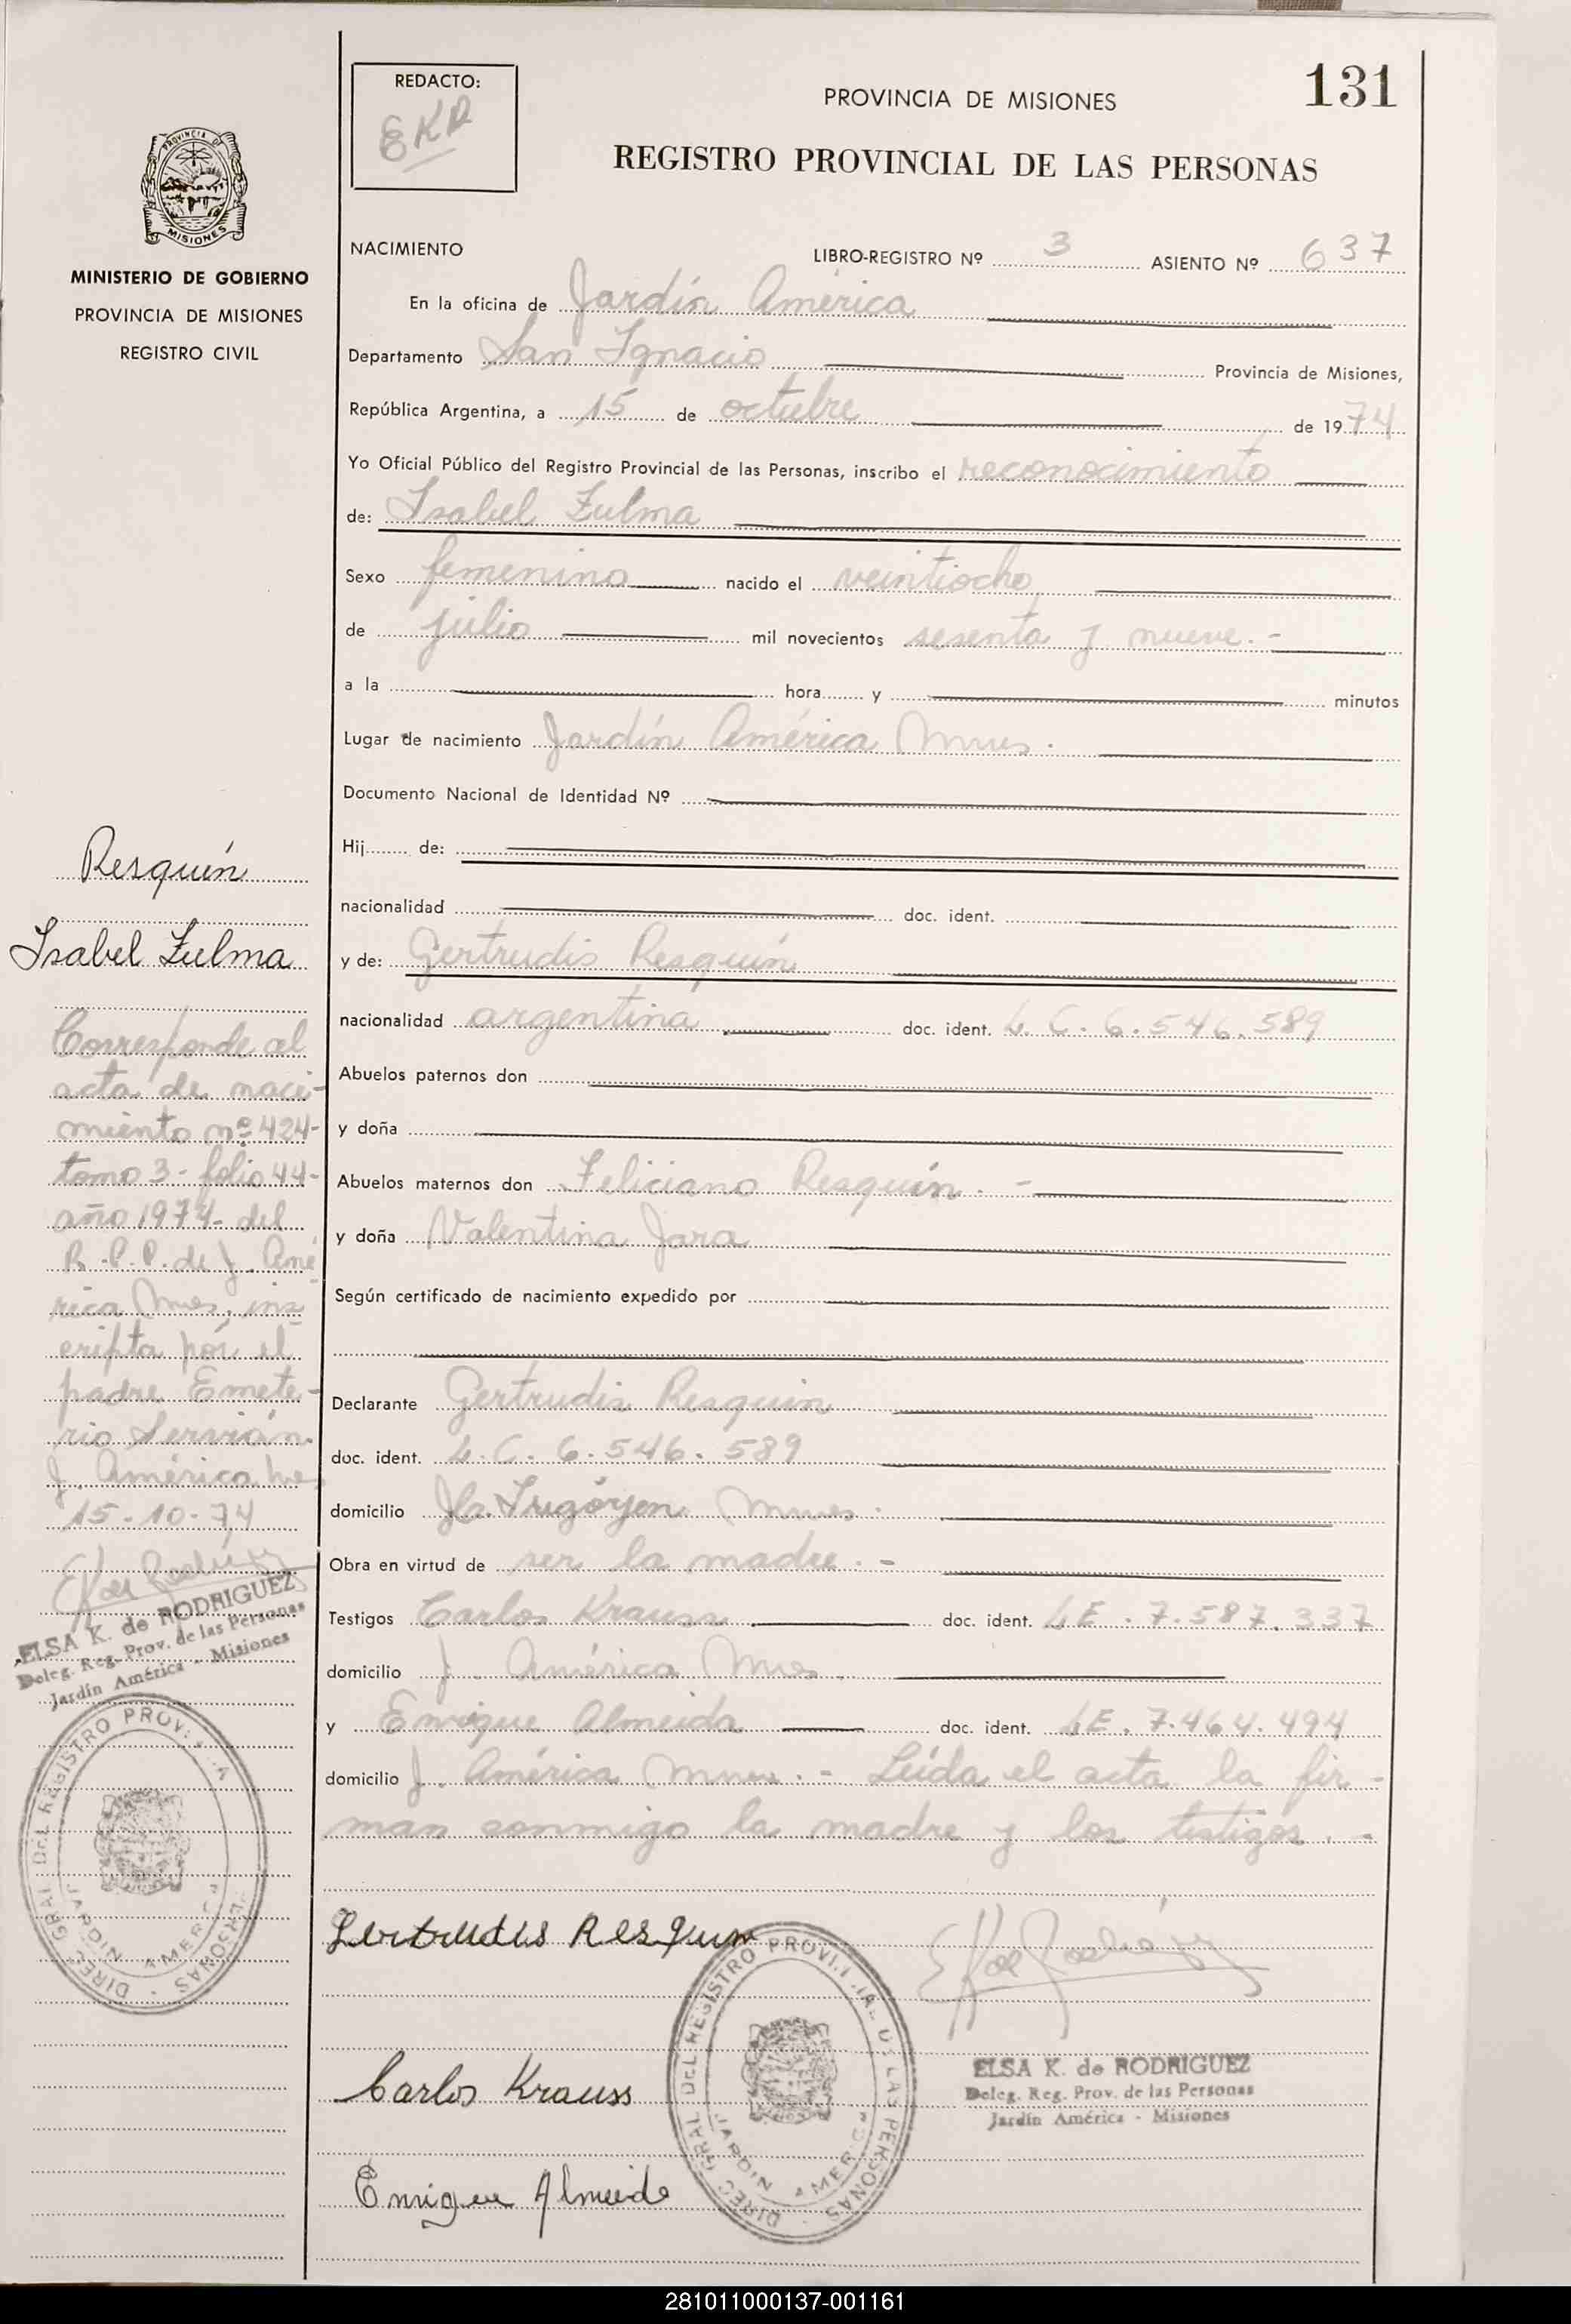 REDACTO:
EKR
PROVINCIA DE MISIONES
131
REGISTRO PROVINCIAL DE LAS PERSONAS
PROVINCIA DE
MISIONES
MINISTERIO DE GOBIERNO
PROVINCIA DE MISIONES
REGISTRO CIVIL
NACIMIENTO LIBRO-REGISTRO Nº 3 ASIENTO Nº 637
En la oficina de Jardín América
Departamento San Ignacio Provincia de Misiones,
República Argentina, a 15 de octubre de 1974
Yo Oficial Público del Registro Provincial de las Personas, inscribo el reconocimiento
de: Isabel Zulma
Sexo femenino nacido el veintiocho
de julio mil novecientos sesenta y nueve.-
a la hora y minutos
Lugar de nacimiento Jardín América Mnes.
Documento Nacional de Identidad Nº
Hij de:
nacionalidad doc. ident.
y de: Gertrudis Resquín
nacionalidad argentina doc. ident. L.C. 6.546.589
Abuelos paternos don
y doña
Abuelos maternos don Feliciano Resquín.-
y doña Valentina Jara
Según certificado de nacimiento expedido por
Declarante Gertrudis Resquin
doc. ident. L.C. 6.546.589
domicilio Hto. Irigóyen Mnes.
Obra en virtud de ser la madre.-
Testigos Carlos Krauss doc. ident. LE. 7.587.337
domicilio J. América Mnes.
y Enrique Almeida doc. ident. LE. 7.464.494
domicilio J. América Mnes.- Leída el acta la fir-
man conmigo la madre y los testigos.-
Resquín
Isabel Zulma
Corresponde al
acta de naci-
miento nº 424-
tomo 3- folio 44-
año 1974- del
R.P.P. de J. Amé
rica Mnes, ins
cripta por el
padre Emete-
rio Servián.
J. América
15-10-74
ELSA K. de RODRIGUEZ
Deleg. Reg. Prov. de las Personas
Jardín América - Misiones
DIREC. GRAL. DEL REGISTRO PROVI PERSONAS
JARDIN AMERICA
Gertrudis Resquin
Carlos Krauss
Enrique Almeida
DIREC. GRAL. DEL REGISTRO PROVI DE LAS PERSONAS
JARDIN AMERICA
ELSA K. de RODRIGUEZ
Deleg. Reg. Prov. de las Personas
Jardín América - Misiones
281011000137-001161